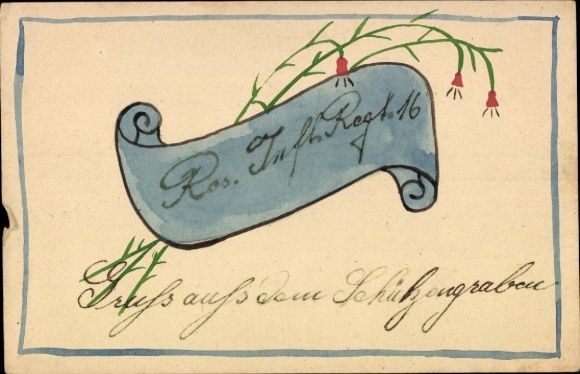 Res. Inft. Regt. 16
Gruss auss dem Schützengraben